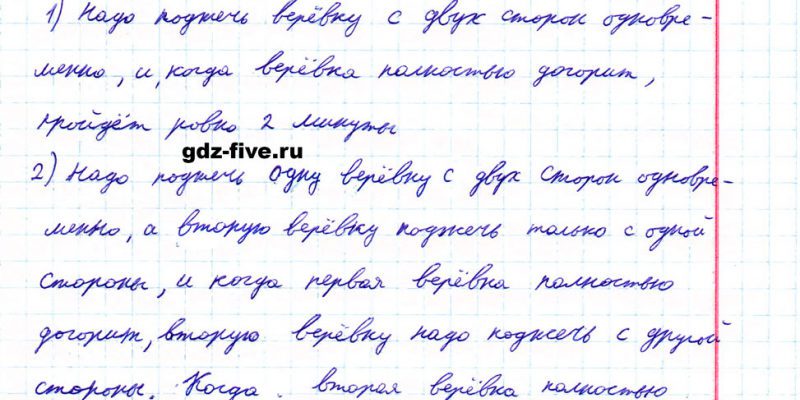 1) Надо поджечь верёвку с двух сторон одновре-
менно, и, когда верёвка полностью догорит,
пройдёт ровно 2 минуты
gdz-five.ru
2) Надо поджечь одну верёвку с двух сторон одновре-
менно, а вторую верёвку поджечь только с одной
стороны, и когда первая верёвка полностью
догорит, вторую верёвку надо поджечь с другой
стороны. Когда вторая верёвка полностью